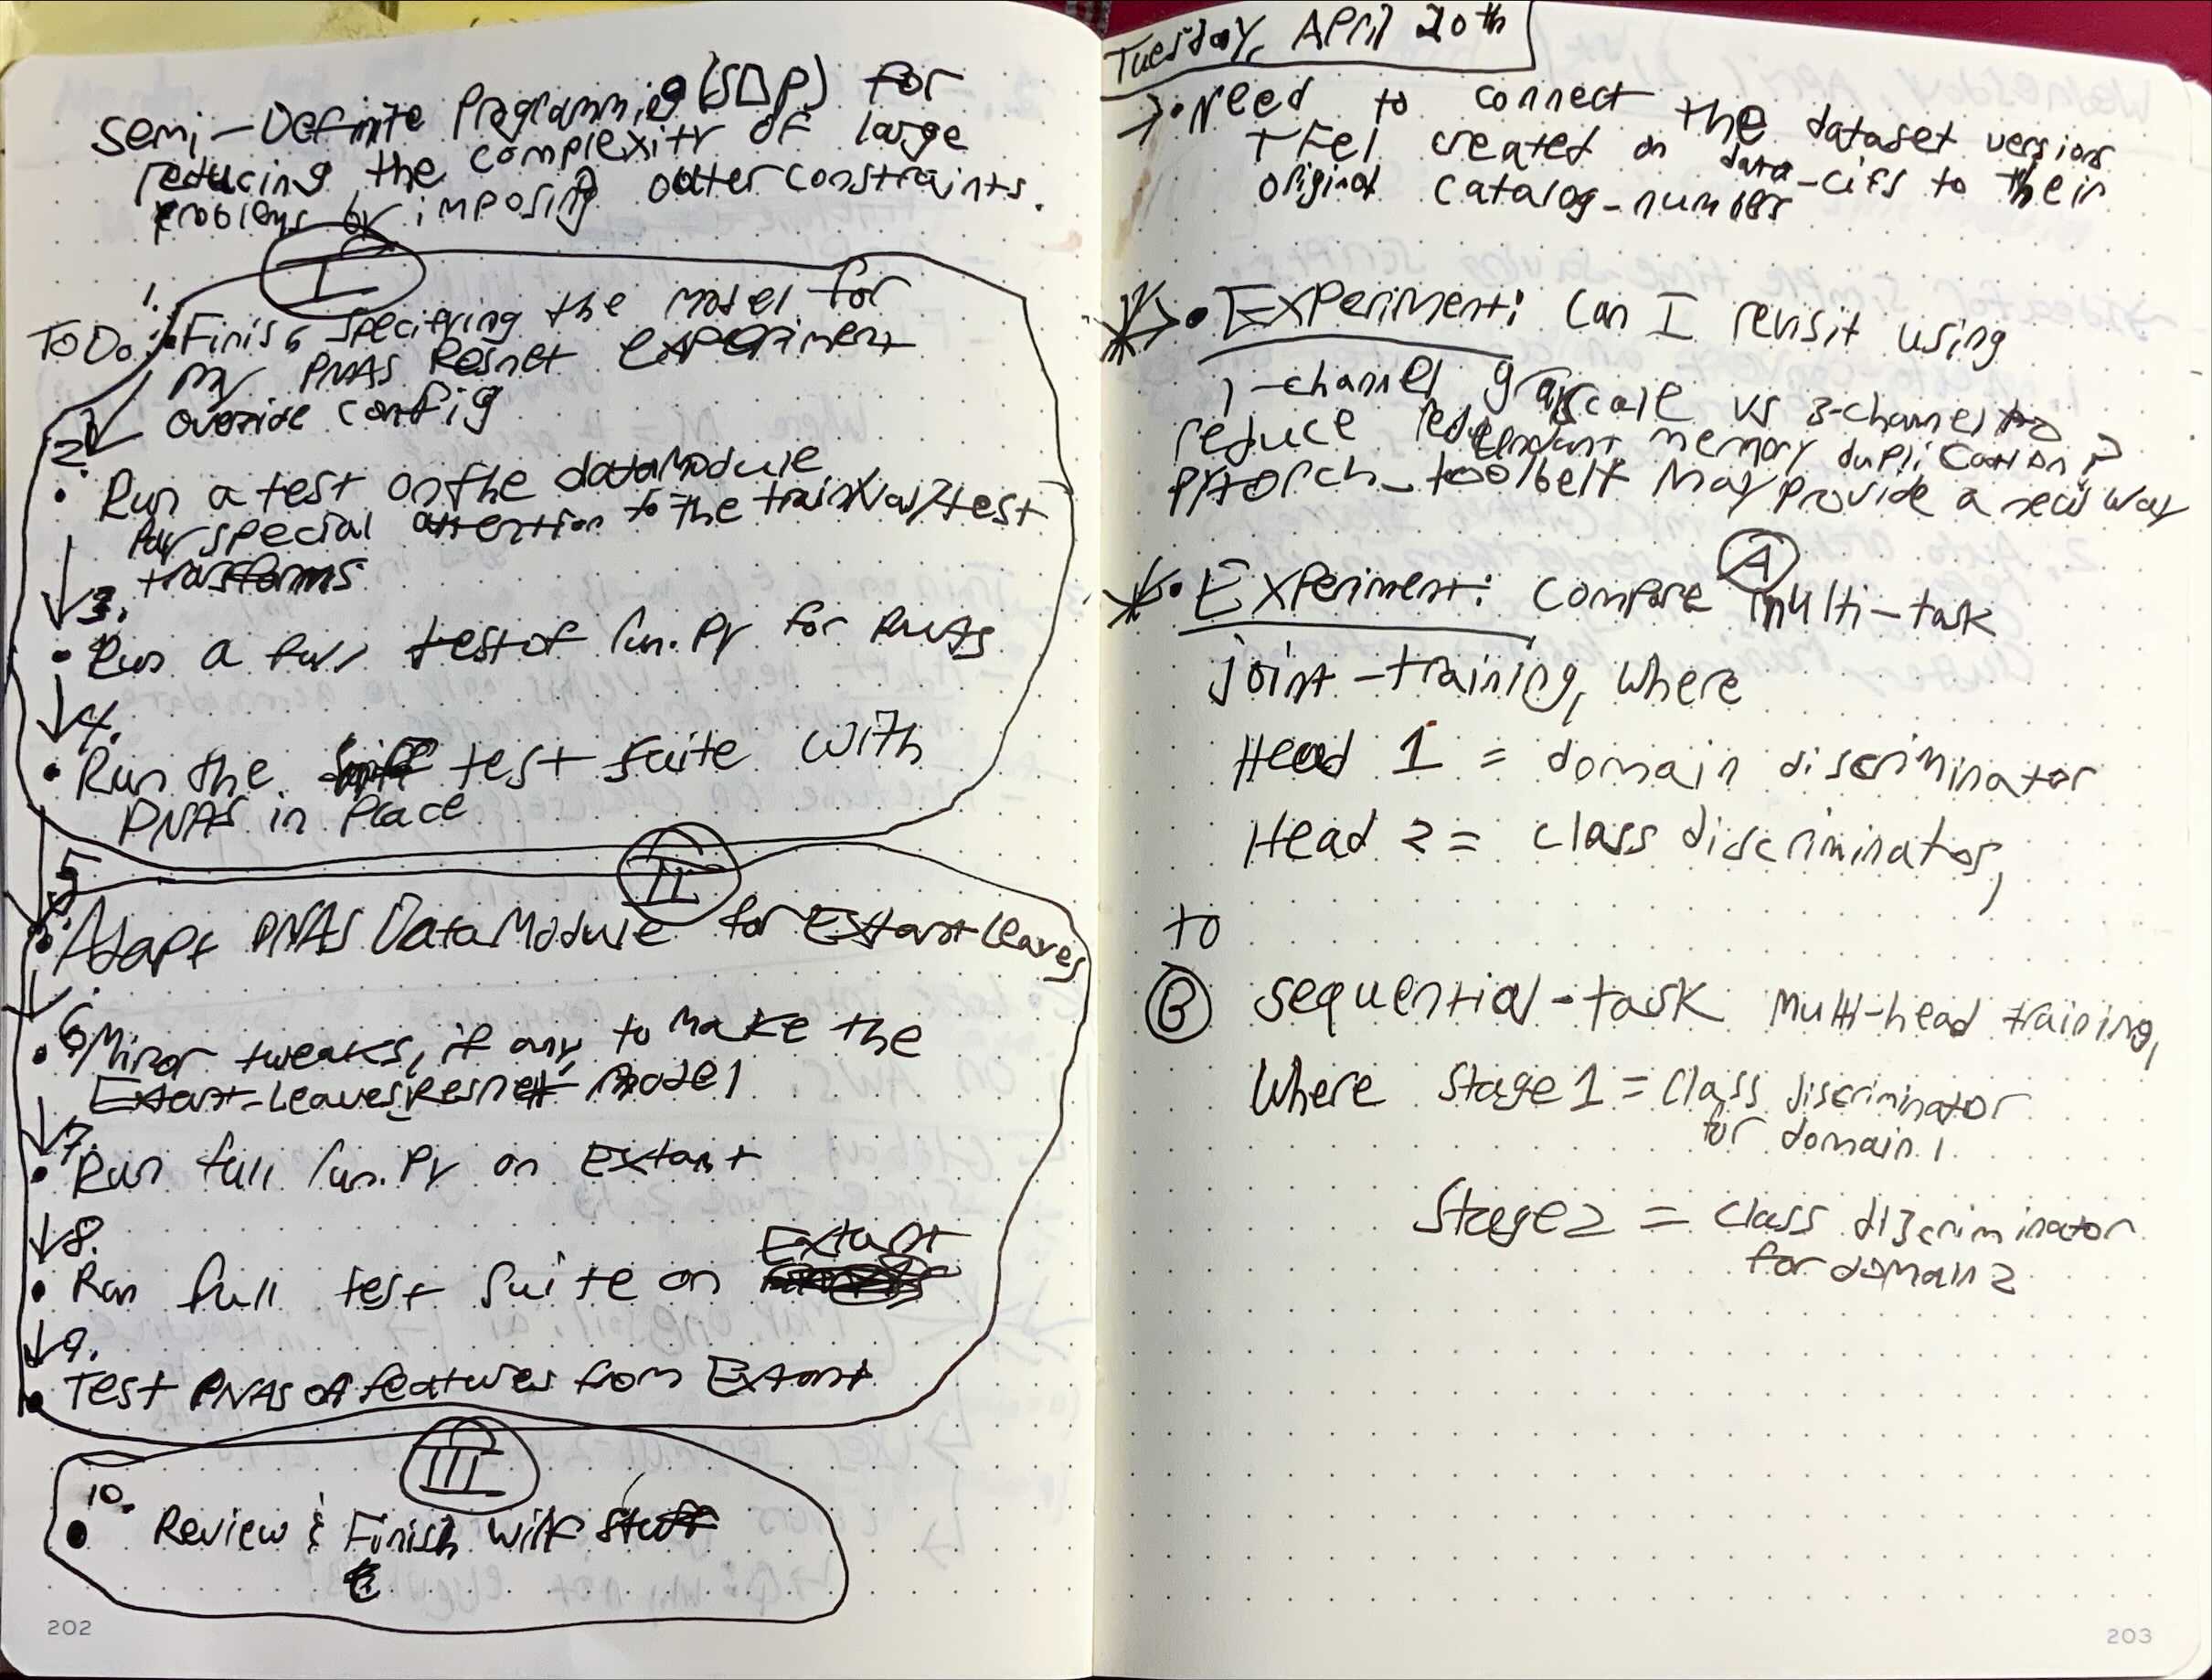 Semi-Definite Programming (SDP) for
reducing the complexity of large
problems by imposing outer constraints.
I
1.
To Do: Finish specifying the model for
my PNAS Resnet experiment
override config
2.
Run a test on the datamodule
Pay special attention to the train/val/test
transforms
3.
Run a full test of run.py for PNAS
4.
Run the test suite with
PNAS in place
II
5
Adapt PNAS DataModule for Extant-Leaves
6 Minor tweaks, if any, to make the
Extant-Leaves Resnet model
7.
Run full run.py on Extant
8.
Extant
Run full test suite on
9.
Test PNAS features from Extant
III
10.
Review & Finish Wilf stuff
202
Tuesday, April 20th
Need to connect the dataset versions
I created on data-cifs to their
original catalog-numbers
Experiment: Can I revisit using
1-channel grayscale vs 3-channel to
reduce redundant memory duplication?
Pytorch_toolbelt may provide a way
A
Experiment: Compare multi-task
joint-training, where
Head 1 = domain discriminator
Head 2 = class discriminator,
to
B sequential-task multi-head training,
Where Stage 1 = Class discriminator
for domain 1
Stage 2 = class discriminator
for domain 2
203